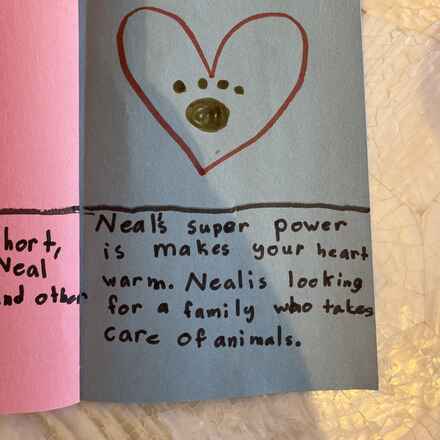 hort,
Neal
nd other
Neal's super power
is makes your heart
warm. Neal is looking
for a family who takes
care of animals.